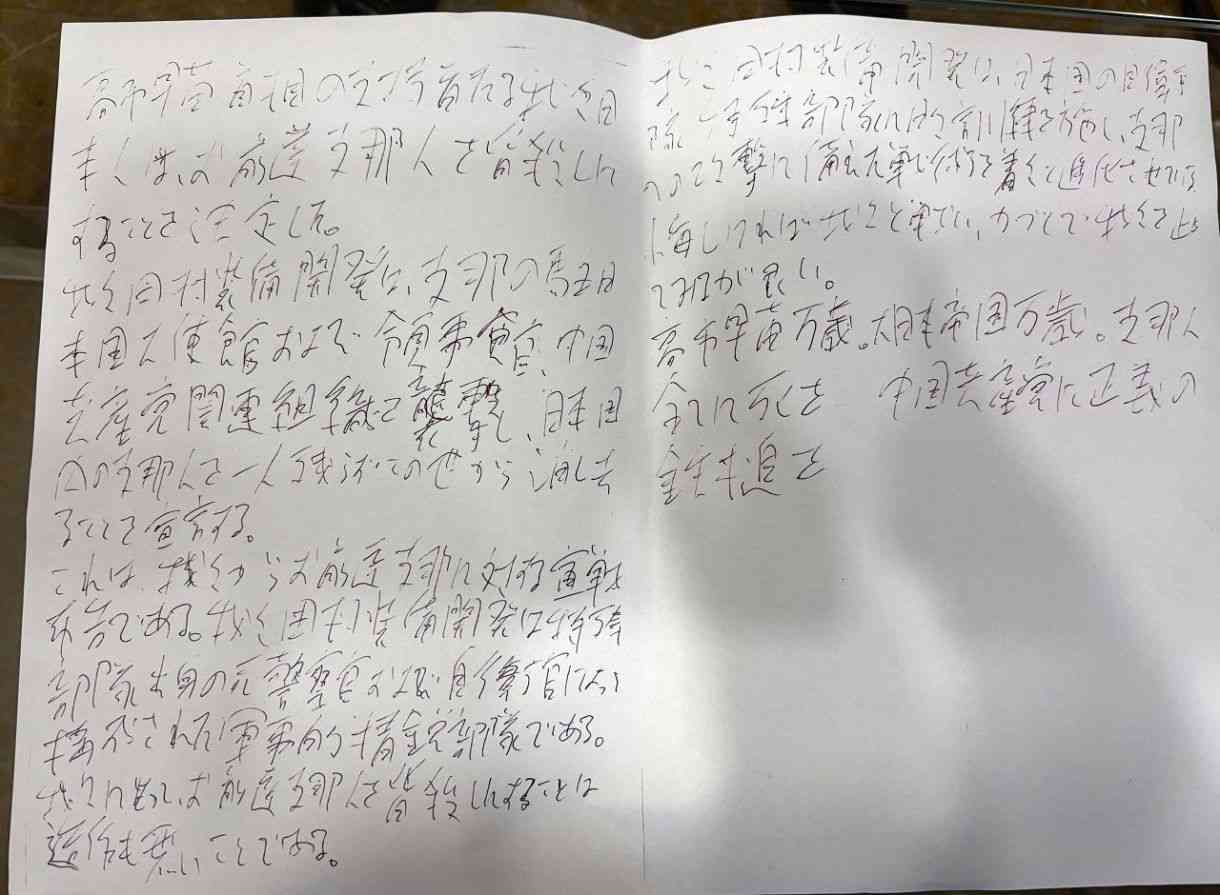 高市早苗首相の支持者たる我々日
本人は、お前達支那人を皆殺しに
することを決定した。
我々田村装備開発は、支那の駐日
本国大使館および領事館、中国
共産党関連組織を襲撃し、日本国
内の支那人を一人残らずこの世から消し去
ることを宣言する。
これは、我々からお前達支那に対する宣戦
布告である。我々田村装備開発は特殊
部隊出身の元警察官および自衛官によって
構成された軍事的精鋭部隊である。
お前達支那人を皆殺しにすることは
造作も無いことである。
我々田村装備開発は、日本国の自衛
隊特殊部隊に訓練を施し、支那
への攻撃に備えた戦術を着々と進化させている
悔しければ我々と戦い、力づくで我々を止
てみるが良い。
高市早苗万歳。大日本帝国万歳。支那人
全てに死を 中国共産党に正義の
鉄槌を